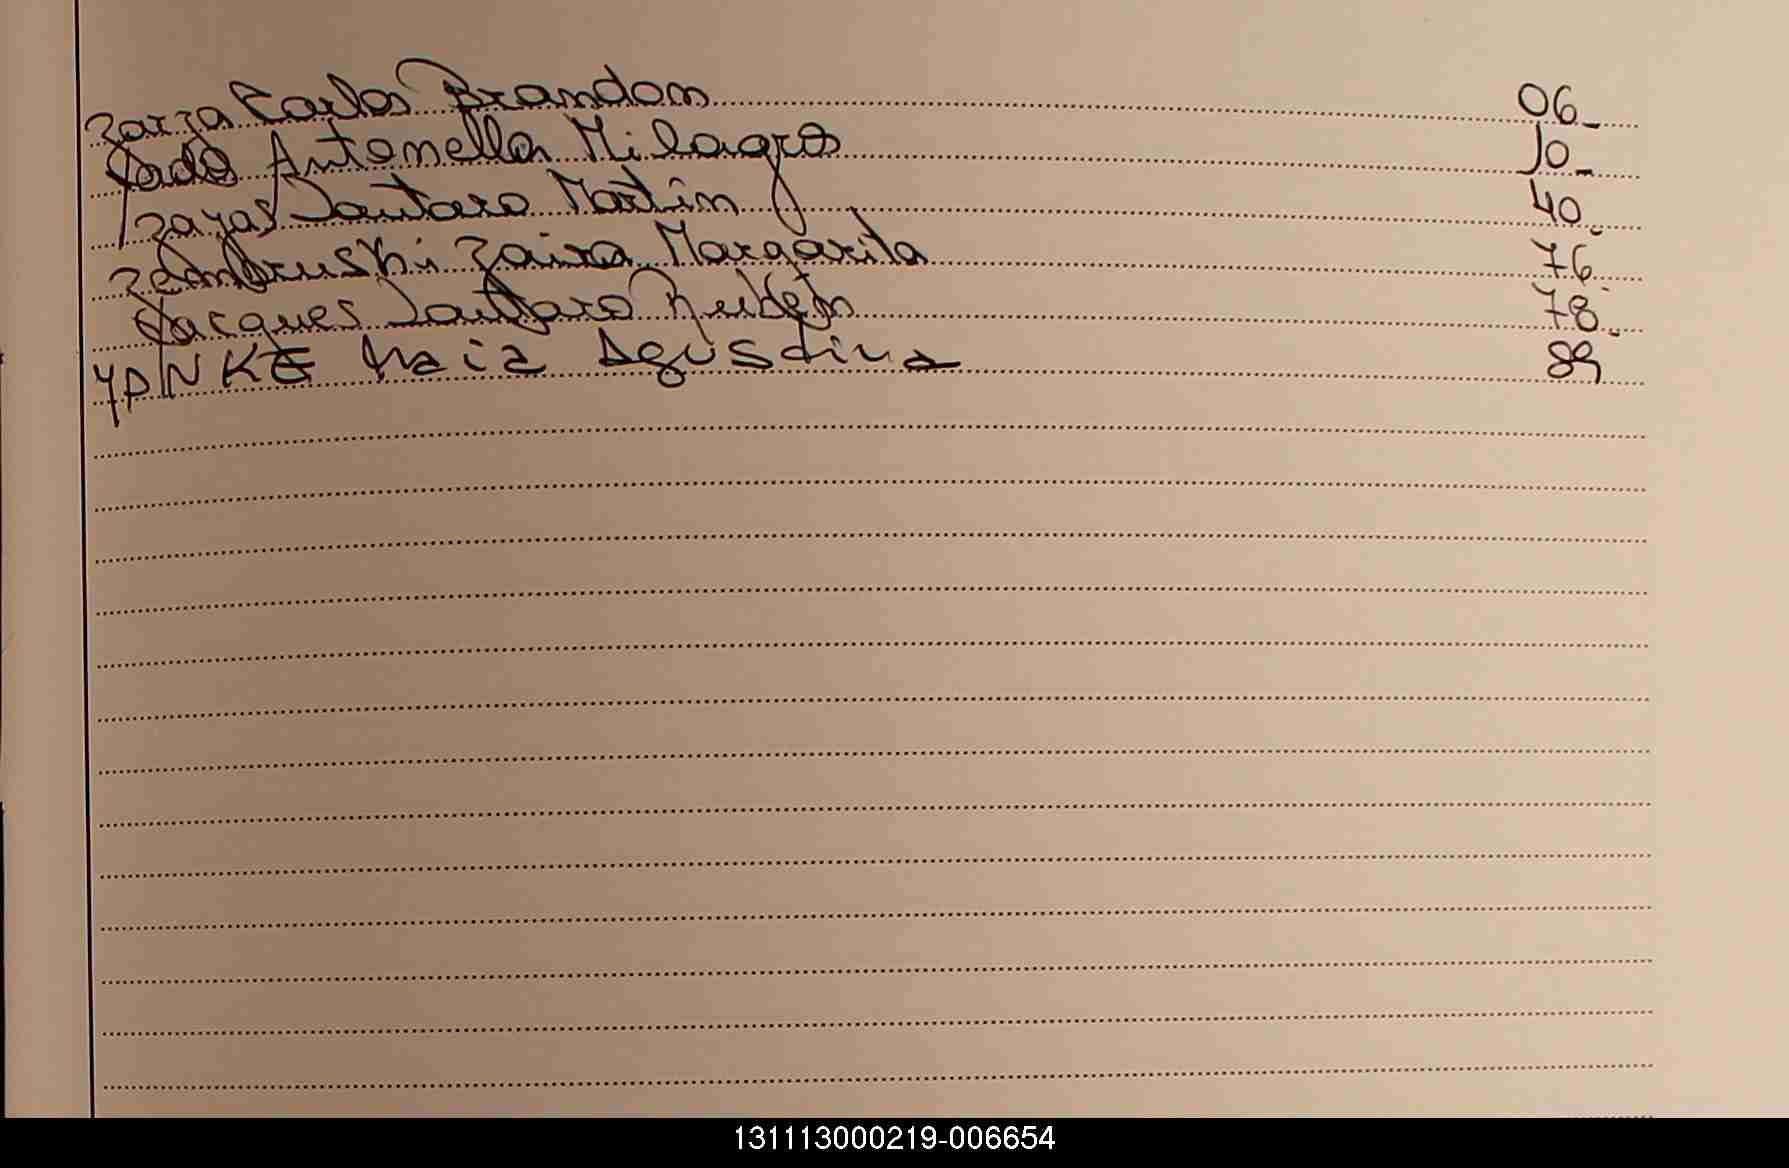 Zarza Carlos Brandon 06_
Antonella Milagros 10_
Zayas Lautaro Martin 40_
Zembruski Zaira Margarita 76.
Jacques Lautaro Rubén 78_
YANKE Naia Agustina 89
131113000219-006654